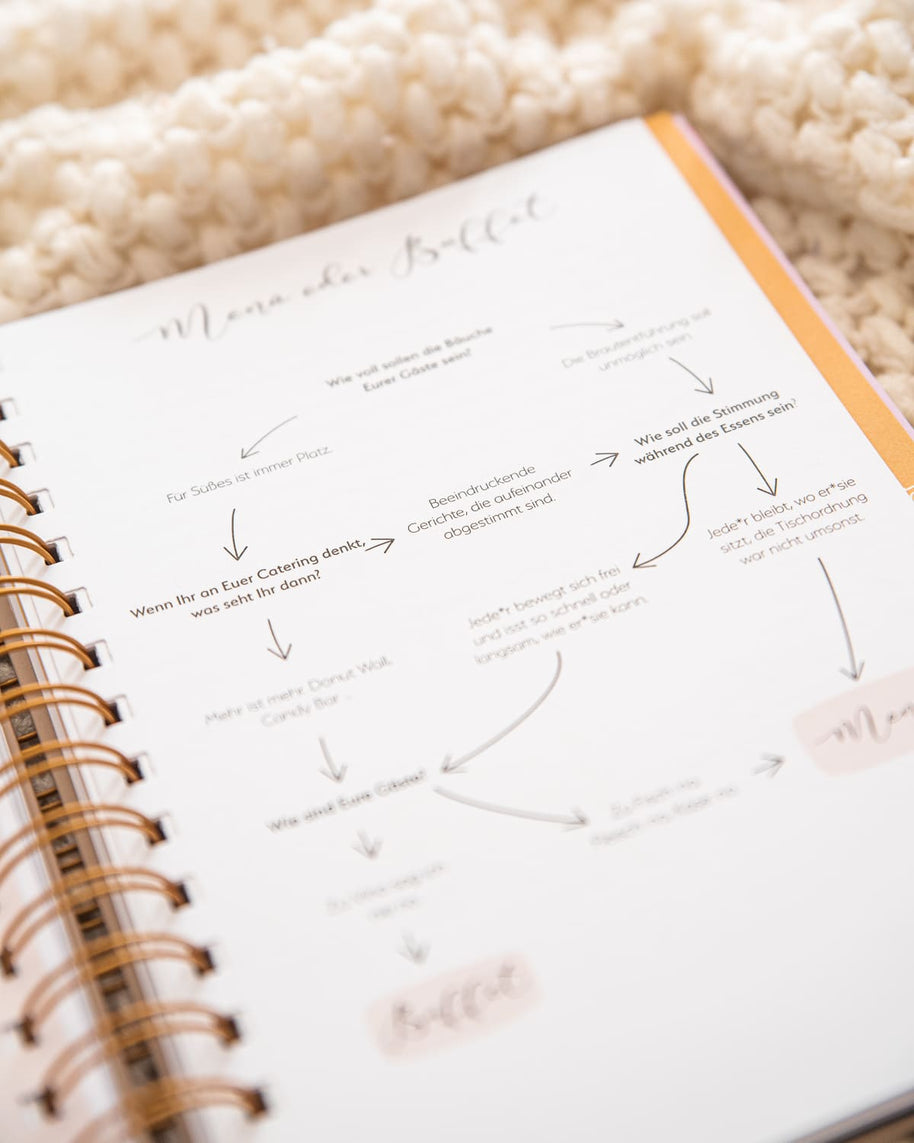 Menü oder Buffet
Wie voll sollen die Bäuche
Eurer Gäste sein?
Die Brautentführung soll
unmöglich sein
Für Süßes ist immer Platz
Wie soll die Stimmung
während des Essens sein?
Beeindruckende
Gerichte, die aufeinander
abgestimmt sind.
Jede*r bleibt, wo er*sie
sitzt, die Tischordnung
war nicht umsonst.
Wenn Ihr an Euer Catering denkt,
was seht Ihr dann?
Jede*r bewegt sich frei
und isst so schnell oder
langsam, wie er*sie kann.
Mehr ist mehr Donut Wall,
Candy Bar -
Wie sind Eure Gäste?
Buffet